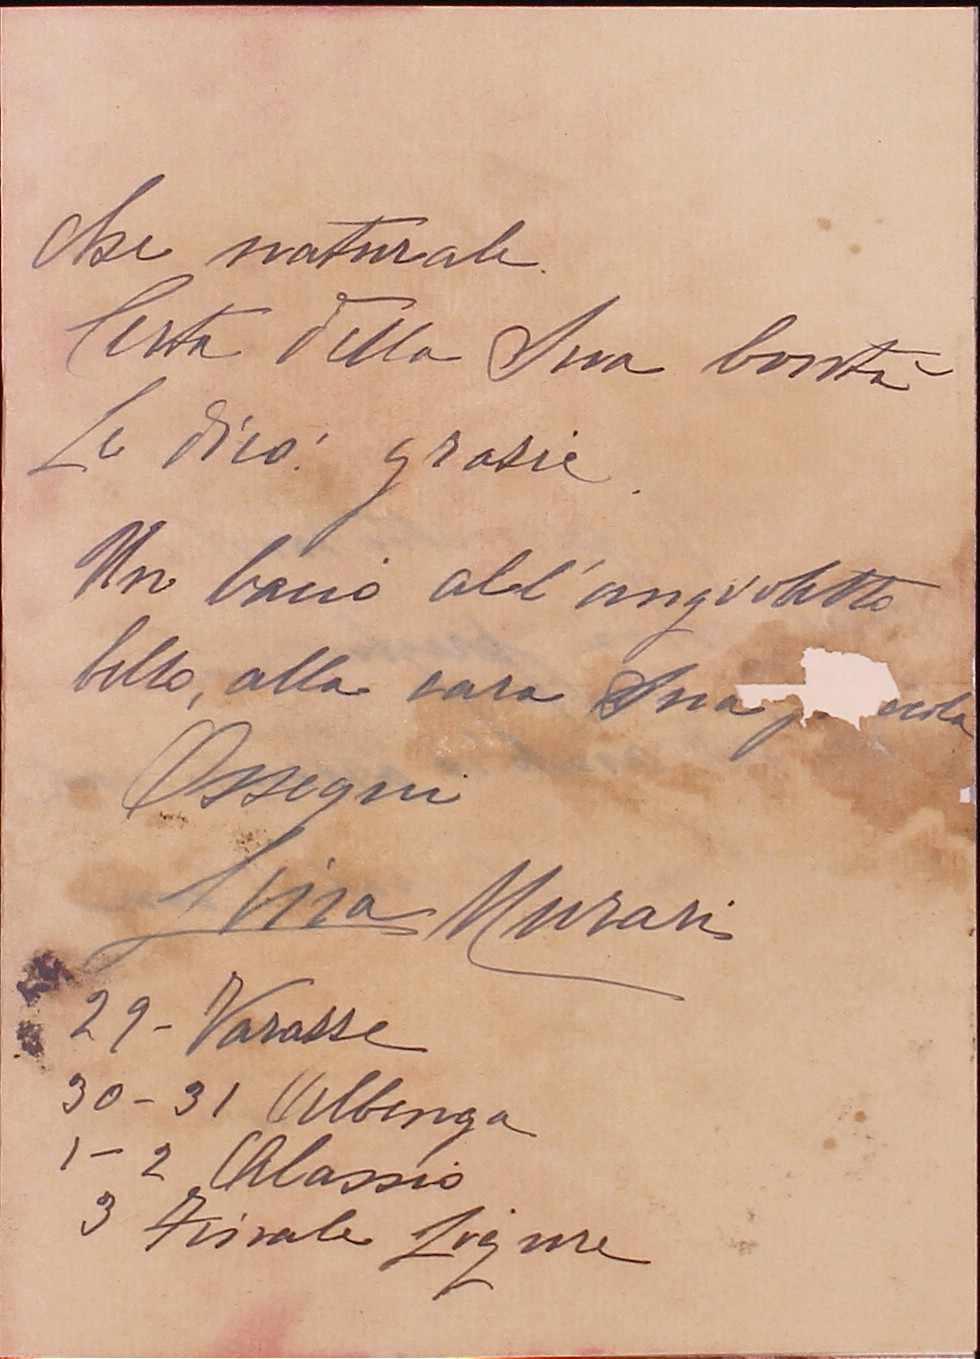 che naturale.
Certa della Sua bontà
Le dico: grazie.
Un bacio all'angioletto
bello, alla cara Sua p
Ossequi
Lina Murari
29 - Varazze
30 - 31 Albenga
1 - 2 Alassio
3 Finale Ligure